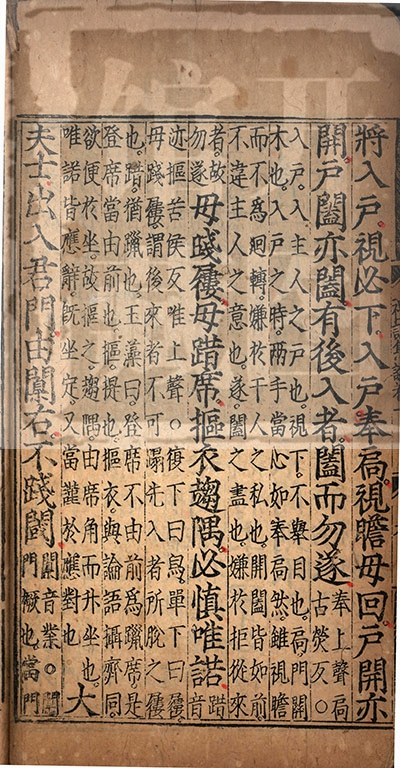 將入戶視必下入戶奉扃視瞻毋回戶開亦
開戶闔亦闔有後入者闔而勿遂
奉上聲扃
古熒反○
入戶入主人之戶也視下不舉目也扃門關
木也入戶之時兩手當心如奉扃然雖視瞻
而不爲廻轉嫌於干人之私也開闔皆如前
不違主人之意也遂闔之盡也嫌於拒從來
者故
勿遂
毋踐屨毋踖席摳衣趨隅必慎唯諾
踖音
迹摳苦侯反唯上聲○複下曰舄單下曰屨
毋踐屨謂後來者不可蹋先入者所脫之屨
也踖猶躐也王藻曰登席不由前爲躐席是
登席當由前也摳提也摳衣與論語攝齊同
欲便於坐故摳之趨隅由席角而升坐也
唯諾皆應辭旣坐定又當謹於應對也
大
夫士出入君門由闑右不踐閾
闑音業○闑
門橛也當門